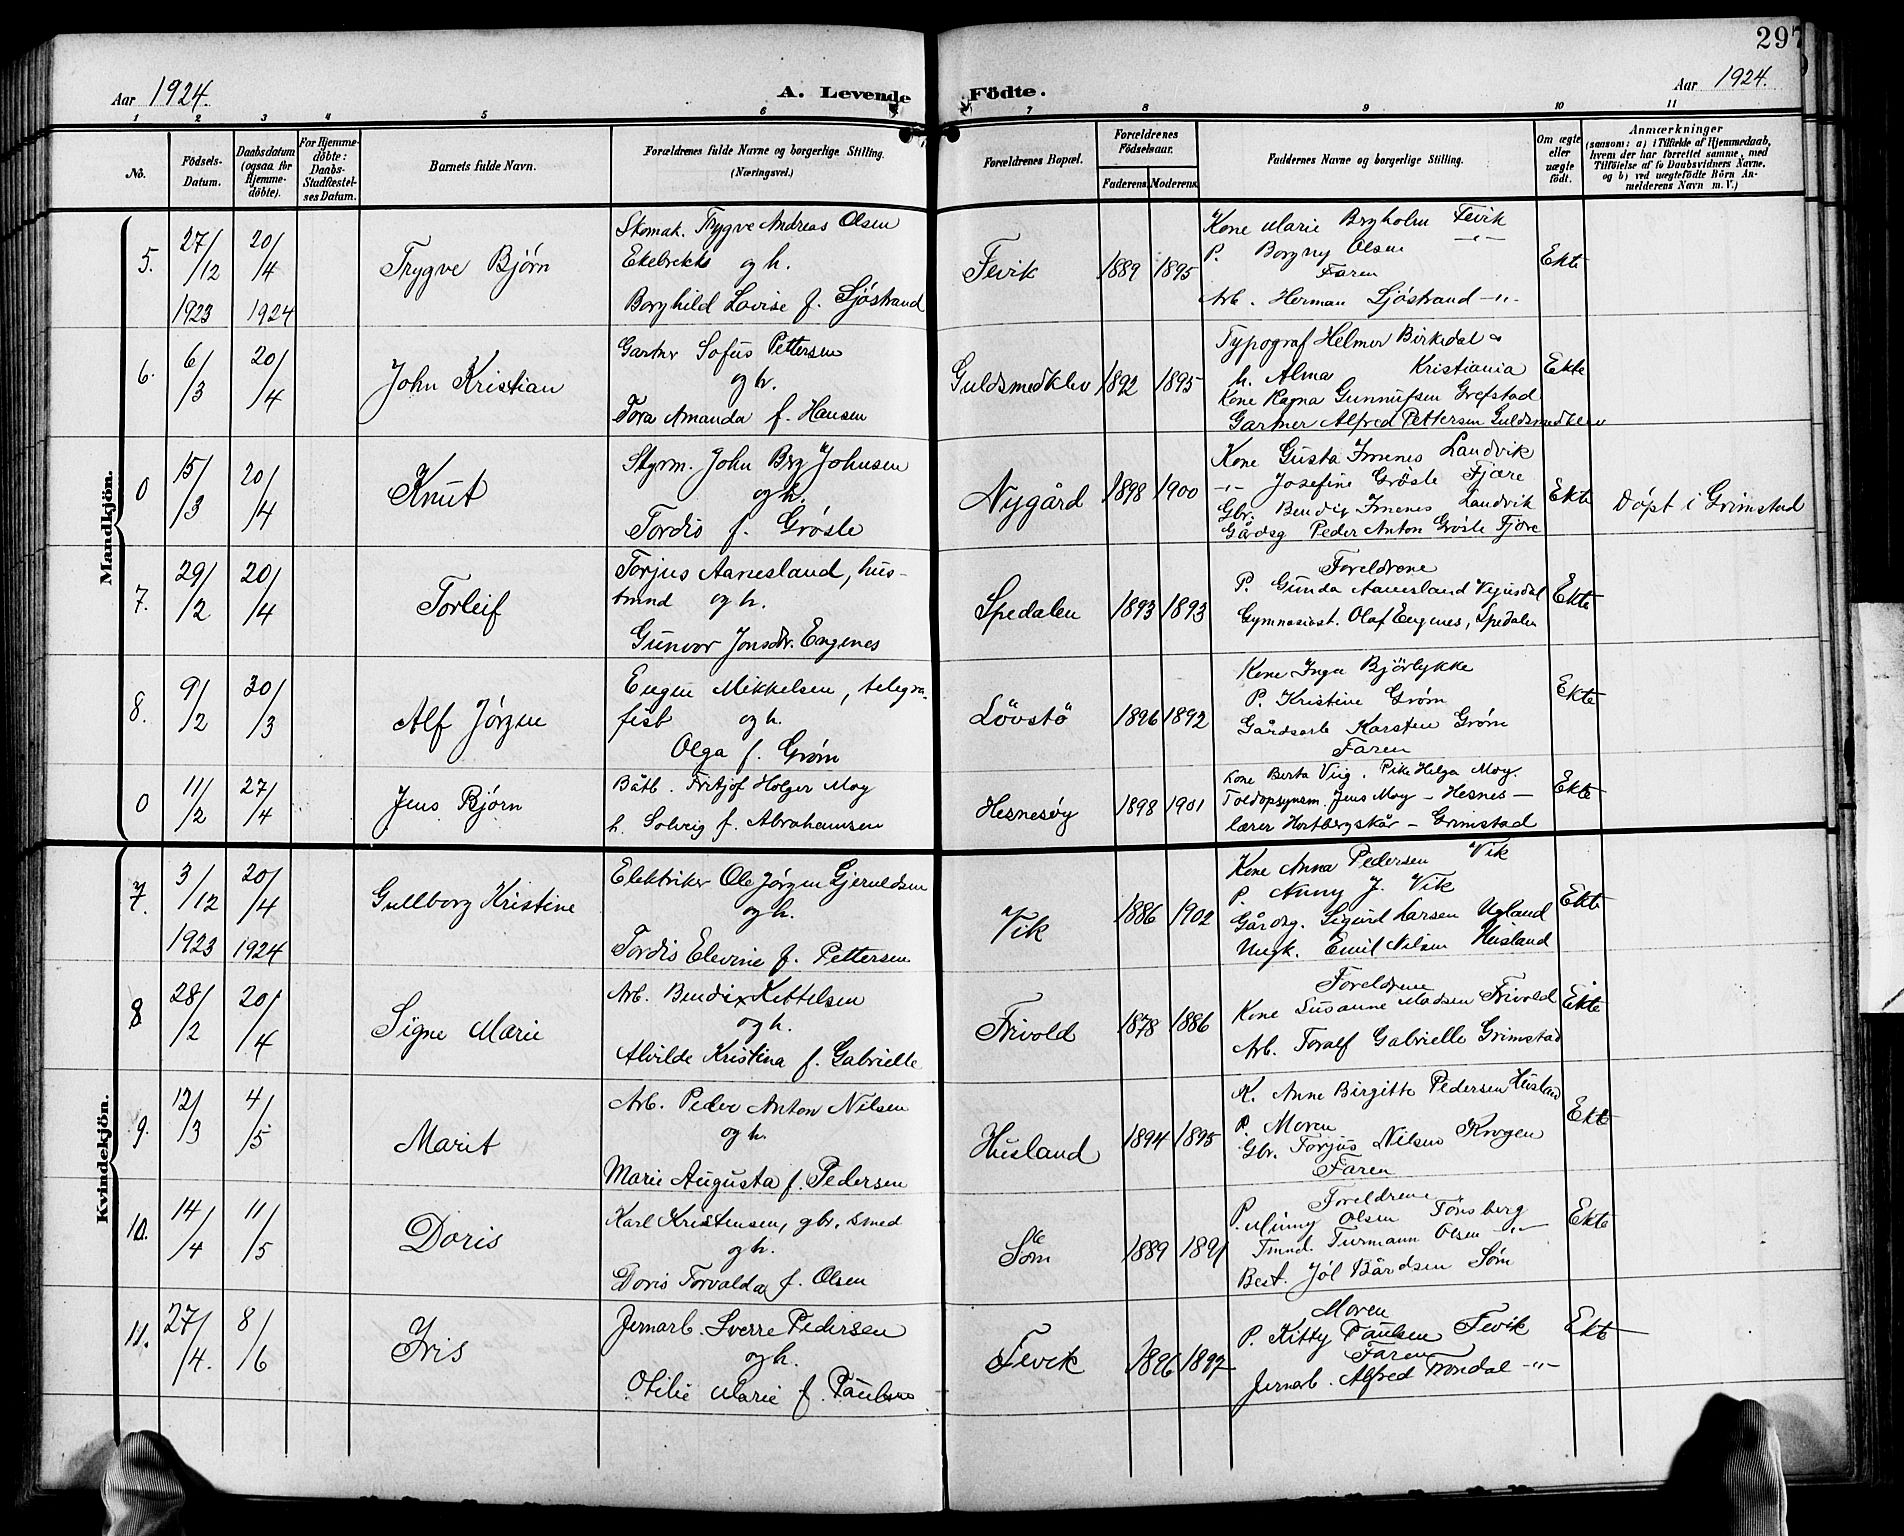 297
Aar 1924.
A. Levende Födte.
Aar 1924.
1 2 3 4 5 6 7 8 9 10 11
No.
Födsels-Datum.
Daabsdatum (ogsaa for Hjemme-döbte).
For Hjemme-döbte: Daabs-Stadfæstel-ses Datum.
Barnets fulde Navn.
Forældrenes fulde Navne og borgerlige Stilling. (Næringsvei.)
Forældrenes Bopæl.
Forældrenes Födselsaar.
Faderens. Moderens.
Faddernes Navne og borgerlige Stilling.
Om ægte eller uægte født.
Anmærkninger
(saasom: a) i Tilfælde af Hjemmedaab, hvem der har forrettet samme, med Tilföielse af to Daabsvidners Navne, og b) ved uægtefödte Börn An-melderens Navn m. V.)
Mandkjön.
5. 27/12 1923 20/4 1924 Trygve Bjørn
Skomak. Trygve Andreas Olsen
Ekebrekke og h.
Borghild Lovise f. Sjöstrand
Fevik 1889 1895
Kone Marie Bryholm Fevik
P. Borgny Olsen -"-
Faren
Arb. Herman Sjöstrand -"-
Ekte
6. 6/3 20/4 John Kristian
Gartner Sofus Pettersen
og h.
Tora Amanda f. Hansen
Guldsmedklev 1892 1895
Typograf Helmer Birkedal &
h. Alma Kristiania
Kone Ragna Gunnufsen Grefstad
Gartner Alfred Pettersen Guldsmedklev
Ekte
0 15/3 20/4 Knut
Styrm. John Brg Johnsen
og h.
Tordis f. Grösle
Nygård 1898 1900
Kone Gusta Imenes Landvik
-"- Josefine Grösle Fjære
Gbr. Bendix Imenes Landvik
Gårdsg Peder Anton Grösle Fjære
Ekte
Döpt i Grimstad
7. 29/2 20/4 Torleif
Torjus Aanesland, hus-
bmnd og h.
Gunvor Jonsdr. Engenes
Spedalen 1893 1893
Foreldrene
P. Gunda Aanesland Vegusdal
Gymnasiast. Olaf Engenes, Spedalen
Ekte
8. 9/2 30/3 Alf Jørgen
Eugen Mikkelsen, telegra-
fist og h.
Olga f. Grøm
Lövstö 1896 1892
Kone Inga Bjørlykke
P. Kristine Grøm
Gårdsarb Karsten Grøm
Faren
Ekte
0 11/2 27/4 Jens Bjørn
Båtb. Fritjof Holger Moy
h. Solveig f. Abrahamsen
Hesnesøy 1898 1901
Kone Berta Viig. Pike Helga Moy.
Toldopsynsm. Jens Moy - Hesnes -
lærer Hortbergskår - Grimstad
Ekte
Kvindekjön.
7. 3/12 1923 20/4 1924 Gullborg Kristine
Elektriker Ole Jørgen Gjeruldsen
og h.
Tordis Elevine f. Pettersen
Vik 1886 1902
Kone Anna Pedersen Vik
P. Anny J. Vik
Gårdsg. Sigurd Larsen Ugland
Ungk. Emil Nilsen Husland
Ekte
8 28/2 20/4 Signe Marie
Arb. Bendix Kettelsen
og h.
Alvilde Kristina f. Gabrielle
Frivold 1878 1886
Foreldrene
Kone Susanne Madsen Frivold
Arb. Toralf Gabrielle Grimstad
Ekte
9. 12/3 4/5 Marit
Arb. Peder Anton Nilsen
og h.
Marie Augusta f. Pedersen
Husland 1894 1895
K. Anne Birgitte Pedersen Husland
P. Moren
Gbr. Torjus Nilsen Krogen
Faren
Ekte
10. 14/4 11/5 Doris
Karl Kristensen, gbr. smed
og h.
Doris Torvalda f. Olsen
Søm 1889 1891
Foreldrene
P. Minny Olsen Tönsberg
Tmnd. Turmann Olsen -"-
Best. Jöl Bårdsen Søm
Ekte
11. 27/4. 8/6 Iris
Jernarb. Sverre Pedersen
og h.
Otilie Marie f. Paulsen
Fevik 1896 1897
Moren
P. Kitty Paulsen Fevik
Faren
Jernarb. Alfred Trondal -"-
Ekte